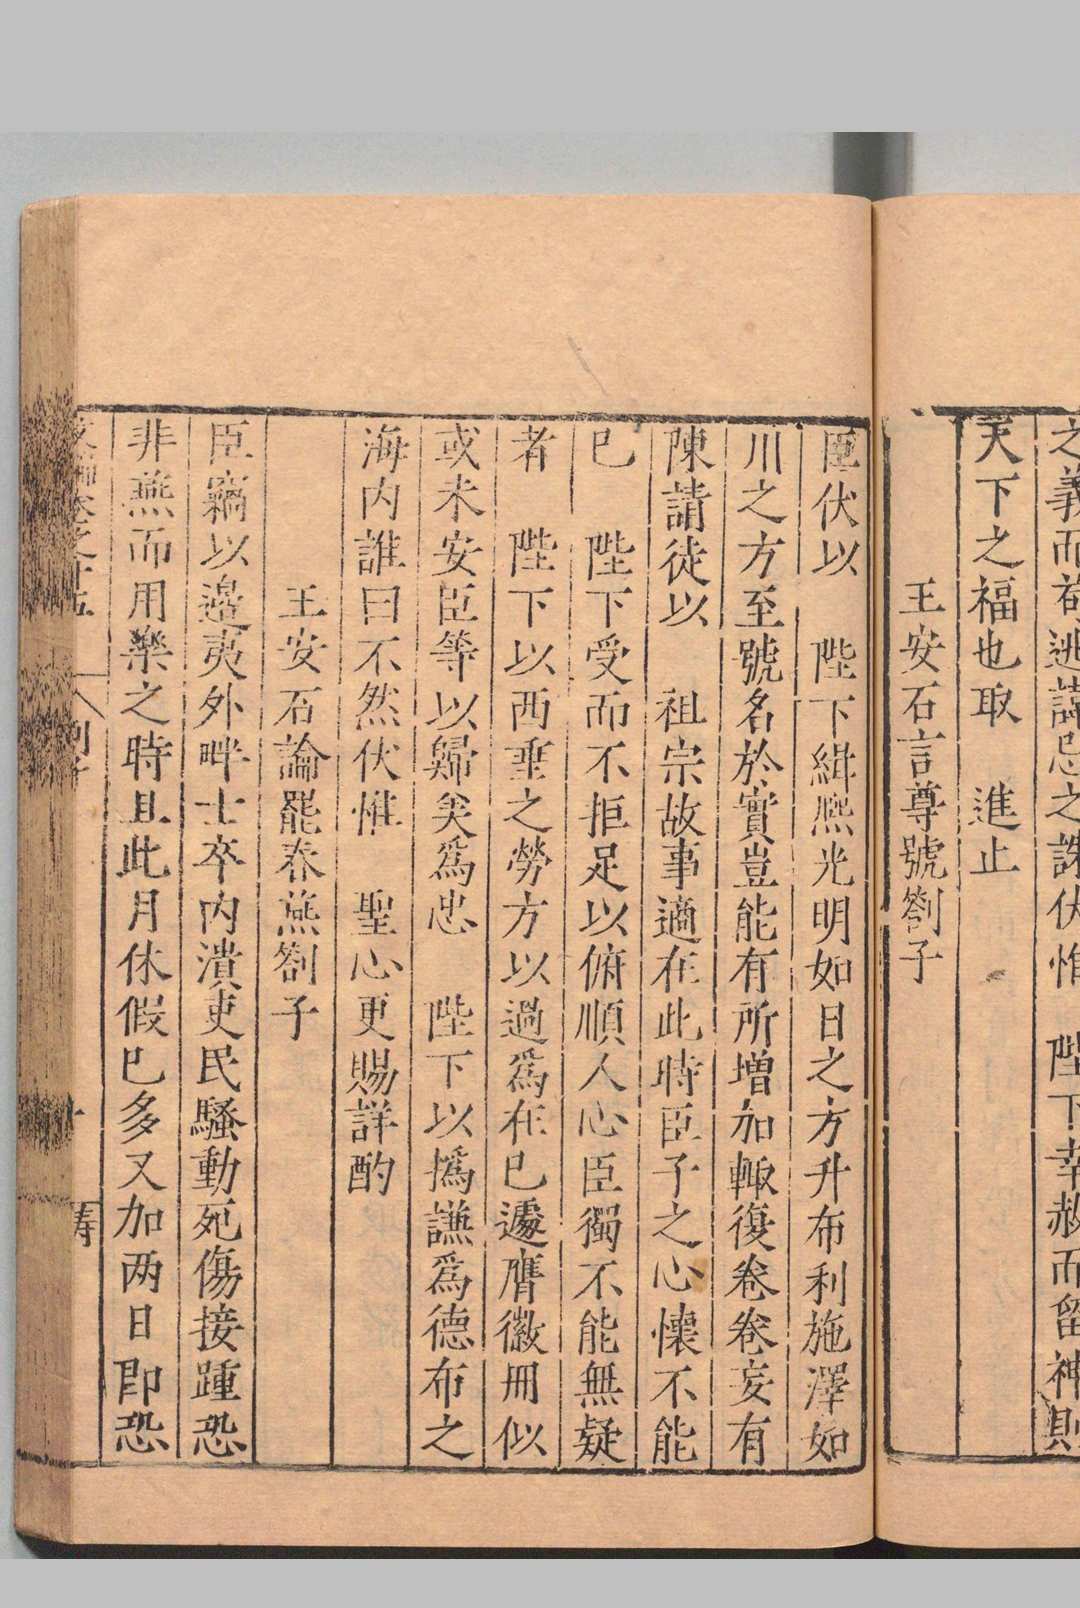 之義而苟逃諱忌之誅伏惟　陛下幸赦而留神則
天下之福也取　進止
王安石言尊號劄子
臣伏以　陛下緝熙光明如日之方升布利施澤如
川之方至號名於實豈能有所增加輙復卷卷妄有
陳請徒以　祖宗故事適在此時臣子之心懷不能
已　陛下受而不拒足以俯順人心臣獨不能無疑
者　陛下以西垂之勞方以過爲在已遽膺徽冊似
或未安臣等以歸美爲忠　陛下以撝謙爲德布之
海内誰曰不然伏惟　聖心更賜詳酌
王安石論罷春燕劄子
臣竊以邊夷外畔士卒内潰吏民騷動死傷接踵恐
非燕而用樂之時且此月休假已多又加两日即恐